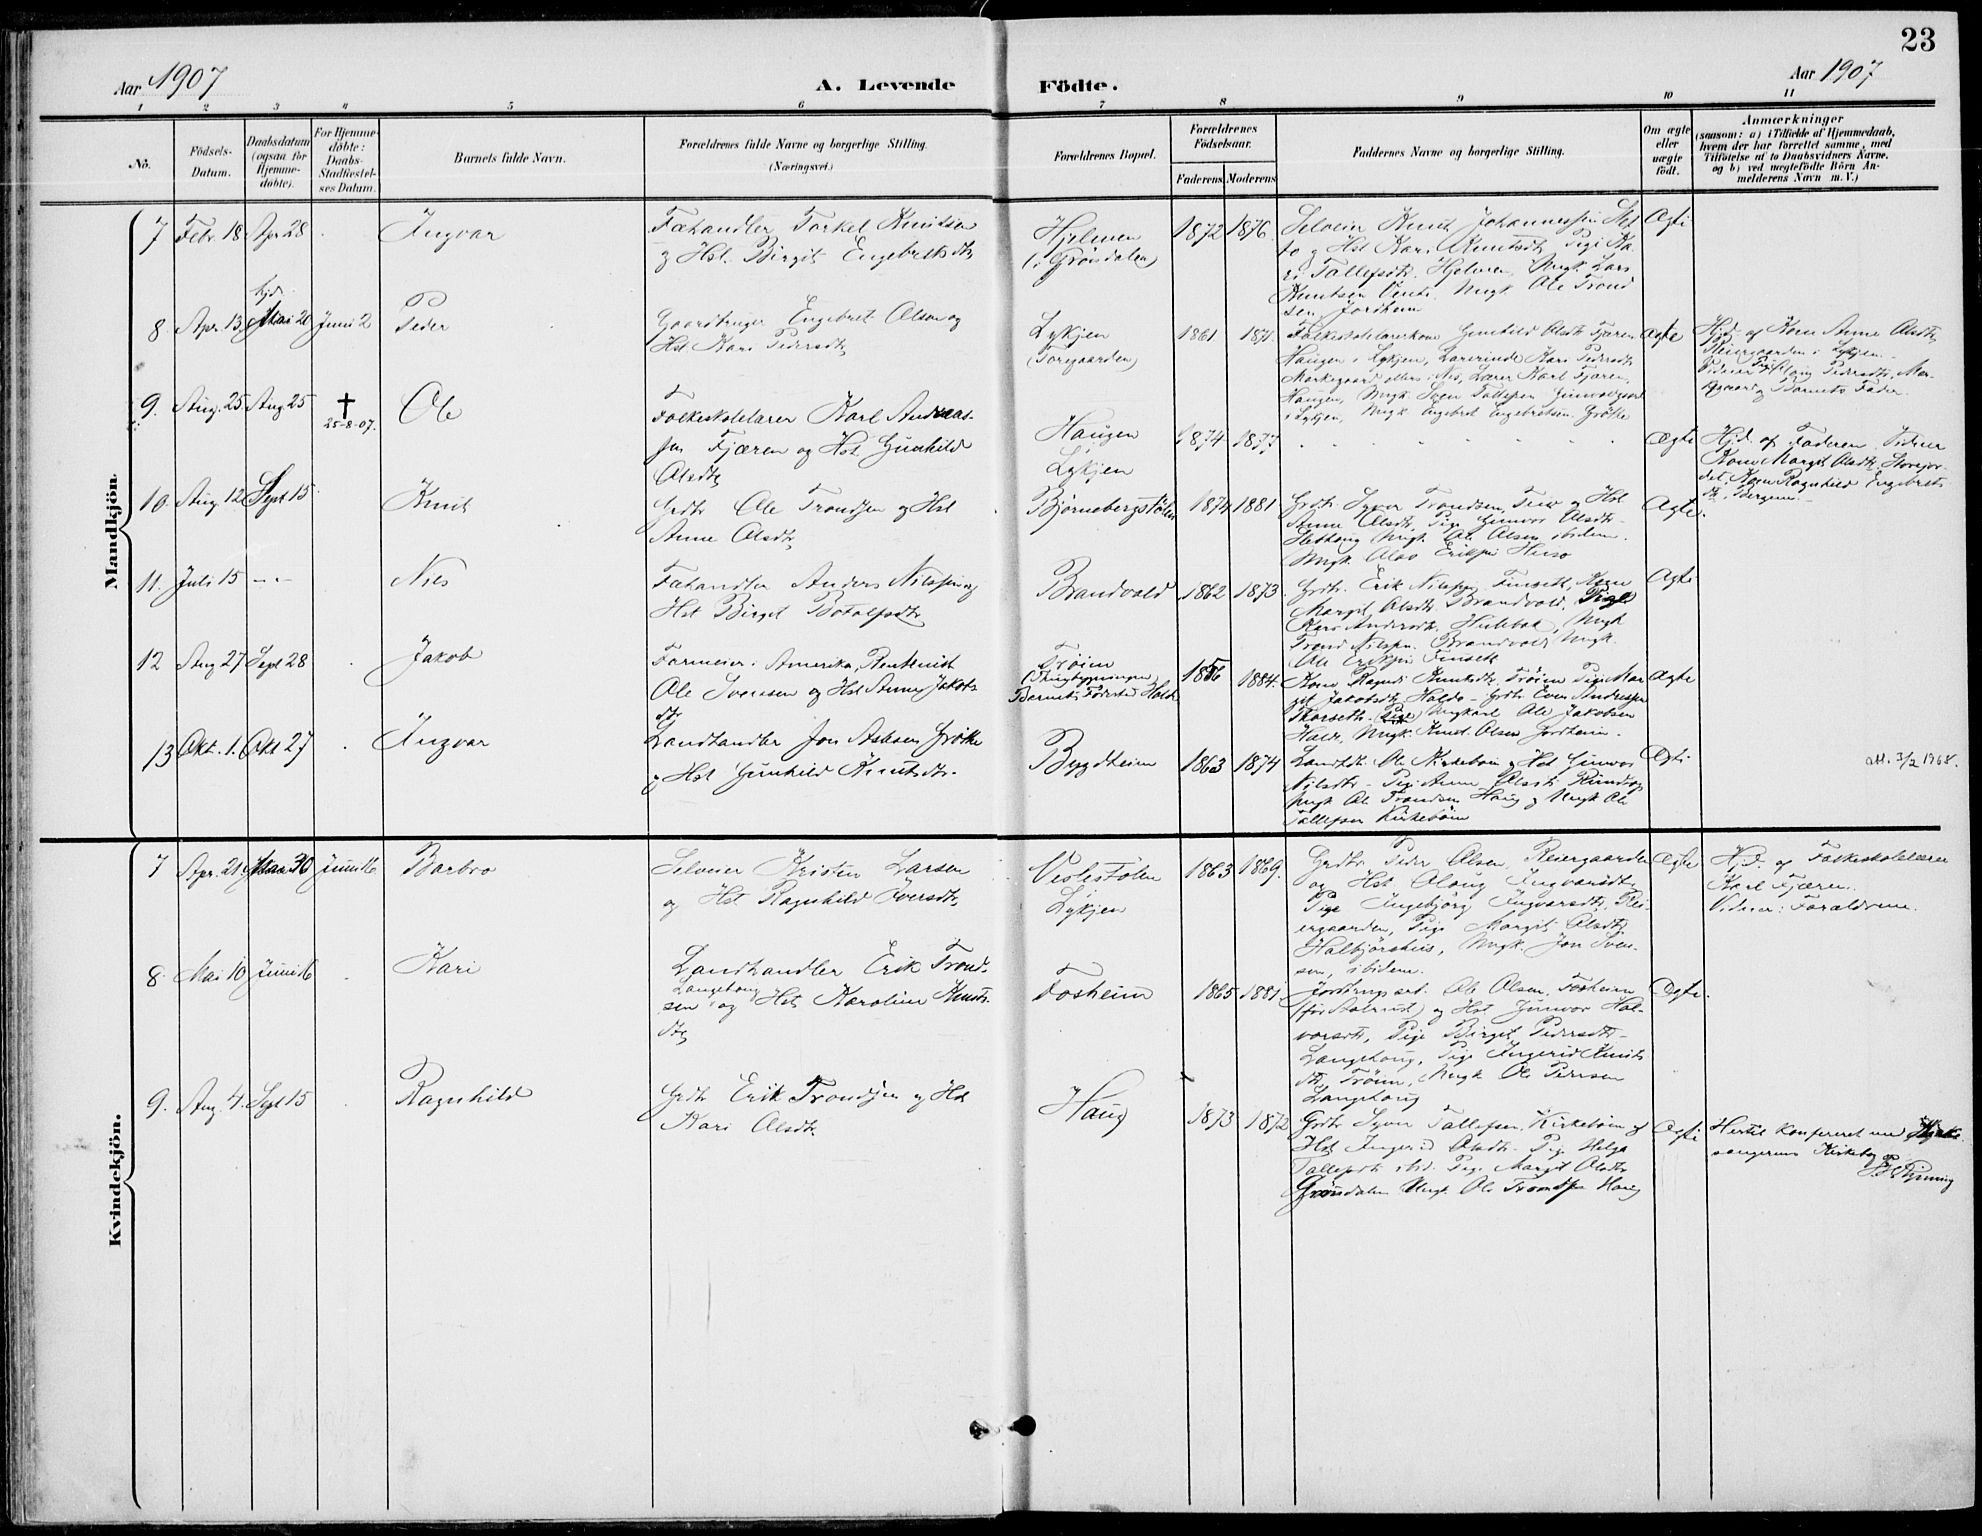 23
Aar 1907
A. Levende Födte.
Aar 1907
1 2 3 4 5 6 7 8 9 10 11
No.
Födsels-
Datum.
Daabsdatum
(ogsaa for
Hjemme-
döbte).
For Hjemme-
döbte:
Daabs-
Stadfæstel-
ses Datum.
Barnets fulde Navn.
Forældrenes fulde Navne og borgerlige Stilling.
(Næringsvei.)
Forældrenes Bopæl.
Forældrenes
Födselsaar.
Faderens Moderens
Faddernes Navne og borgerlige Stilling.
Om ægte
eller
uægte
født.
Anmærkninger
(saasom: a) i Tilfælde af Hjemmedaab,
hvem der har forrettet samme, med
Tilföielse af to Daabsvidners Navne,
og b) ved uægtefödte Börn An-
melderens Navn m. V.)
Mandkjön.
7 Febr. 18 Apr 28 Ingvar
Fæhandler Torkel Knutsen
og Hst. Birgit Engebretsdtr
Hjelmen
(i Grøndalen)
1872 1876.
Selveier Knut Johannessen
og Hst Kari Knutsdtr Pige Ka-
ri Tollefsdtr. Hjelmen, Ungk. Lars
Knutsen Ungk Ole Trond
sen Jordheim
Ægte
8 Apr. 13 hjd. Mai 20 Juni 2 Peder
Gaardbruger Engebret Olsen og
Hst Kari Pedersdtr
Lykjen
(Toregaarden)
1861 1871.
Folkeskolelærerkone Gunhild Olsdtr Fjæren
Haugen i Lykjen, Lærerinde Kari Pedersdtr
Markegaard Nes, Lærer Karl Fjæren,
Haugen, Ungk. Sven Tollefsen
i Lykjen, Ungk Engebret Engebretsen. Grøthe
Ægte
Hjd. af Kone Anne Olsdtr
Reiergaarden i Lykjen.
Vidner Pige Pedersdtr, Mar-
kegaard og Barnets Fader.
9. Aug. 25 Aug 25 † 25-8-07. Ole
Folkeskolelærer Karl Andreas-
sen Fjæren og Hst. Gunhild
Olsdtr
Haugen
Lykjen
1874 1877
Ægte
Hjd. af Faderen. Vidner
Kone Margit Olsdtr.
Kone Ragnhild Engebrets
dtr, Bergem.
10. Aug. 12 Sept 15 Knut
Grdbr Ole Trondsen og Hst
Anne Olsdtr
Bjørnebergstølen
1874 1881
Grdbr. Syver Trondsen, og Hst
Anne Olsdtr, Pige Gunvor Olsdtr
Ungk. Ole Olsen ibidem.
Ungk Olav Eriksen
Ægte.
11. Juli 15 - - Nils
Fæhandler Anders Nilssen og
Hst Birget Botolfsdtr
Brandvold
1862 1873
Grdbr. Erik Nilssen Finseth, Kone
Margit Olsdtr Brandvold, Pige
Kari Andersdtr. Hulebak, Ungk
Trond Nilssen Brandvold Ungk.
Ole Eriksen Finseth
Ægte
12 Aug 27 Sept 28 Jakob
Farmeier. Amerika, Rentenist
Ole Svensen og Hst Anne Jakobs
dtr
Trøim
Barnets Fødested Halde
1856 1884.
Kone Ragndi Knutsdtr, Trøim Pige Mar
git Jakobsdtr, Halde – Grdbr. Even Andressen
Thorseth. Ungkarl Ole Jakobsen
Halde, Ungk. Knut Olsen Jordheim.
Ægte
13 Okt. 1. Okt 27 Ingvar
Landhandler Jon Aslesen Grøthe
og Hst Gunhild Knutsdtr.
Bygdheim
1863 1874
Landhdl. Ole Kirkebøen og Hst Gunvor
Nilsdtr – Pige Anne Olsdtr
Ungk Ole Trondsen Haug og Ungk Ole
Tollefsen Kirkebøen
Ægte
att. 3/2 1968.
Kvindekjön.
7 Apr. 21 Mai 30 Juni 16 Barbro
Selveier Kristen Larsen
og Hst Ragnhild Iversdtr,
Veslestølen
Lykjen
1863 1869.
Grdbr Peder Olsen, Reiergaarden
og Hst Olaug Ingvarsdtr
Pige Ingebjörg Ingvarsdtr, Rei-
ergaarden, Pige Margit Olsdtr
Halbjörshus, Ungk. Jon Sven-
sen, ibidem.
Ægte
Hjd. af Folkeskolelærer
Karl Fjæren.
Vidner: Forældrene.
8. Mai 10 Juni 16 Kari
Landhandler Erik Trond-
sen Langehaug og Hst Karoline Knuts-
dtr
Fosheim
1865 1881.
Ole Olsen, Fosheim
og Hst Gunvor Hal-
vorsdtr, Pige Birget Pedersdtr
Langehaug, Pige Ingerid Knuts
dtr, Trøim, Ungk Ole Pedersen
Langehaug
Ægte.
9. Aug. 4. Sept 15 Ragnhild
Grdbr Erik Trondsen og Hst
Kari Olsdtr
Haug
1873 1872
Grdbr Syver Tollefsen, Kirkebøen og
Hst Ingerid Olsdtr. Pige Helga
Tollefsdtr ibd. Pige Margit Olsdtr
Grøndalen Ungk. Ole Trondsen Haug
Ægte
Hertil konfereret med Kirke-
sangerens Kirkebog